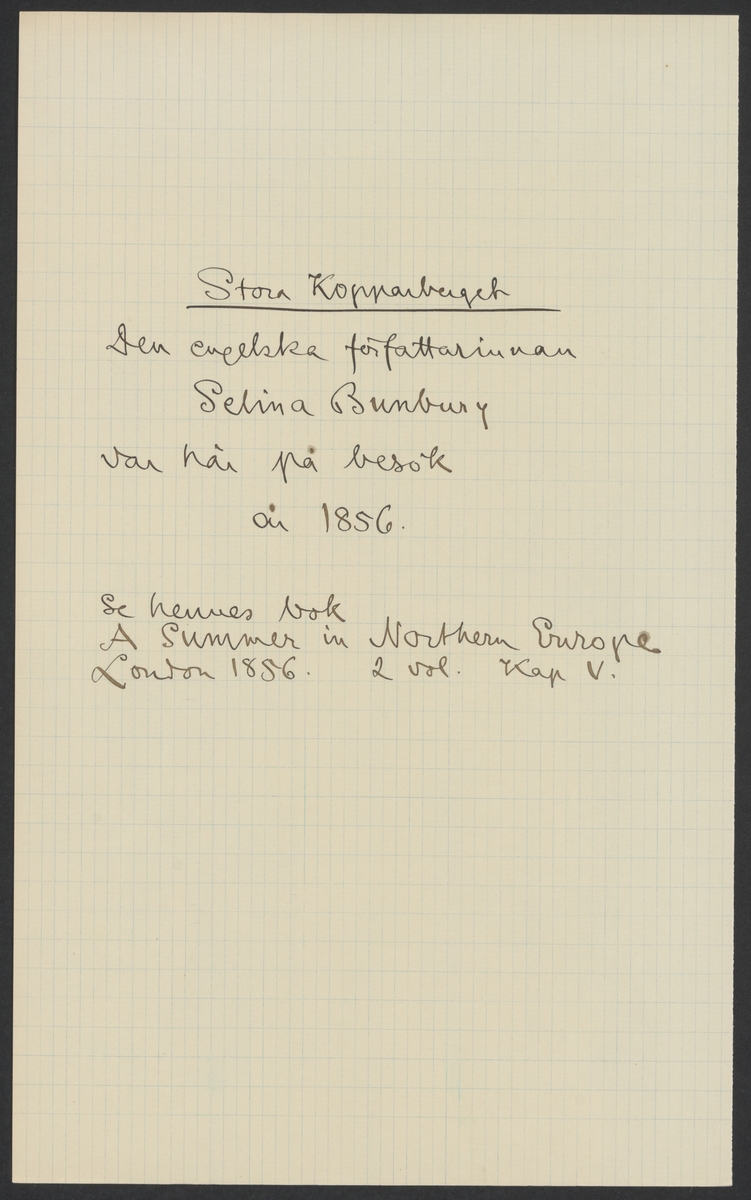 Stora Kopparberget
Den engelska författarinnan
Selina Bunbury
var här på besök
år 1856.
Se hennes bok
A Summer in Northern Europe
London 1856. 2 vol. Kap V.